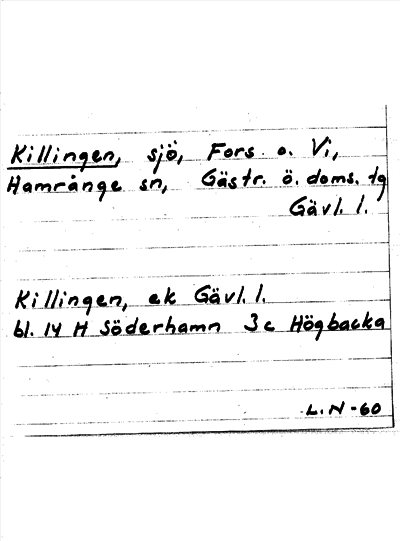 Killingen, sjö, Fors o. Vi,
Hamrånge sn, Gästr. ö. doms. tg
Gävl. l.
Killingen, ek Gävl. l.
bl. 14 H Söderhamn 3c Högbacka
L. N -60